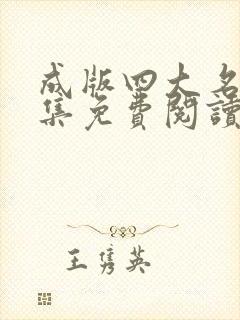 成版四大名
集免費閱讀
王雋英